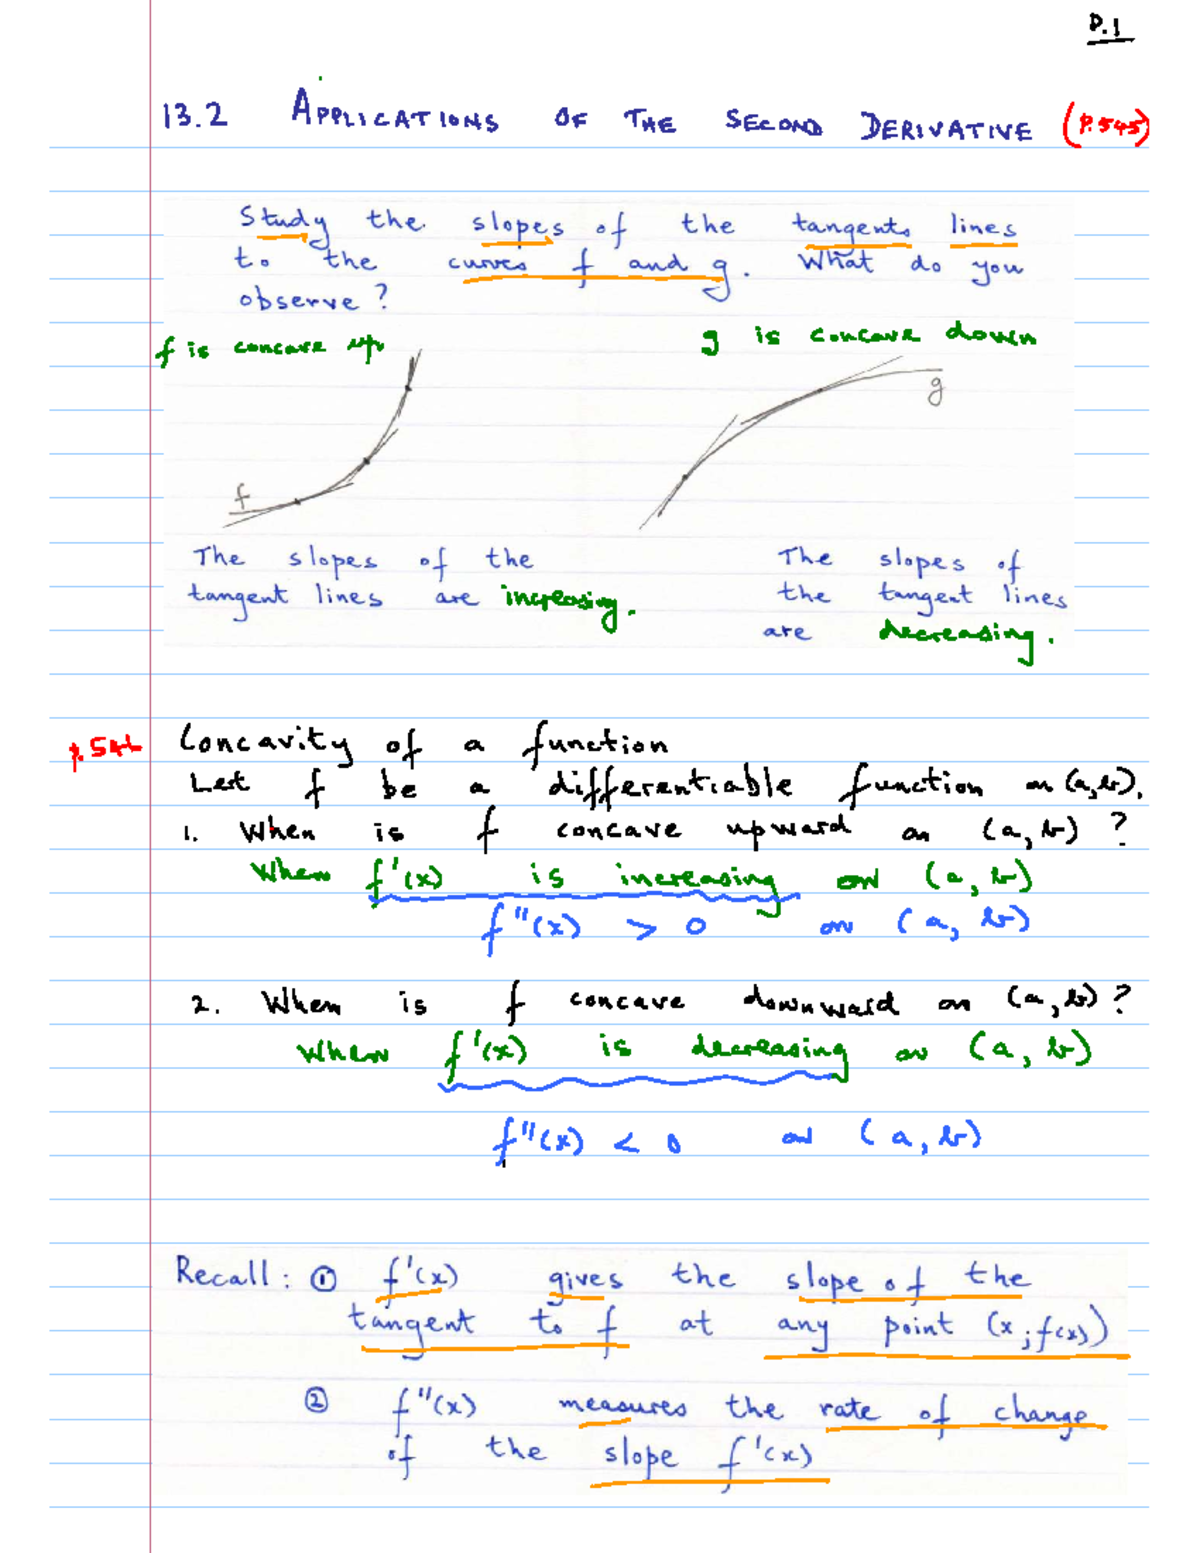 P.1
13.2 APPLICATIONS OF THE SECOND DERIVATIVE (P.545)
Study the slopes of the tangents lines
to the curves f and g. What do you
observe?
f is concave up
g is concave down
f
g
The slopes of the
tangent lines are increasing.
The slopes of
the tangent lines
are decreasing.
Concavity of a function
Let f be a differentiable function on (a,b).
1. When is f concave upward on (a, b)?
When f'(x) is increasing on (a, b)
f''(x) > 0 on (a, b)
2. When is f concave downward on (a, b)?
When f'(x) is decreasing on (a, b)
f''(x) < 0 on (a, b)
Recall: ① f'(x) gives the slope of the
tangent to f at any point (x; f(x))
② f''(x) measures the rate of change
of the slope f'(x)